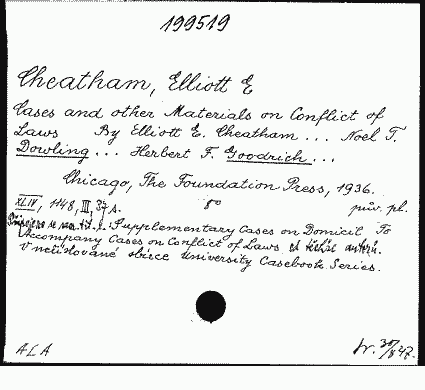 199519
Cheatham, Elliott E
Cases and other Materials on Conflict of
Laws By Elliott E. Cheatham ... Noel T.
Dowling ... Herbert F. Goodrich ...
Chicago, The Foundation Press, 1936.
XLIV, 1148, III, 37 s. 8° pův. pl.
Supplementary Cases on Domicil To
Accompany Cases on Conflict of Laws od těchže autorů.
V nečíslované sbírce University Casebook Series.
ALA Jr. 30/8 47.